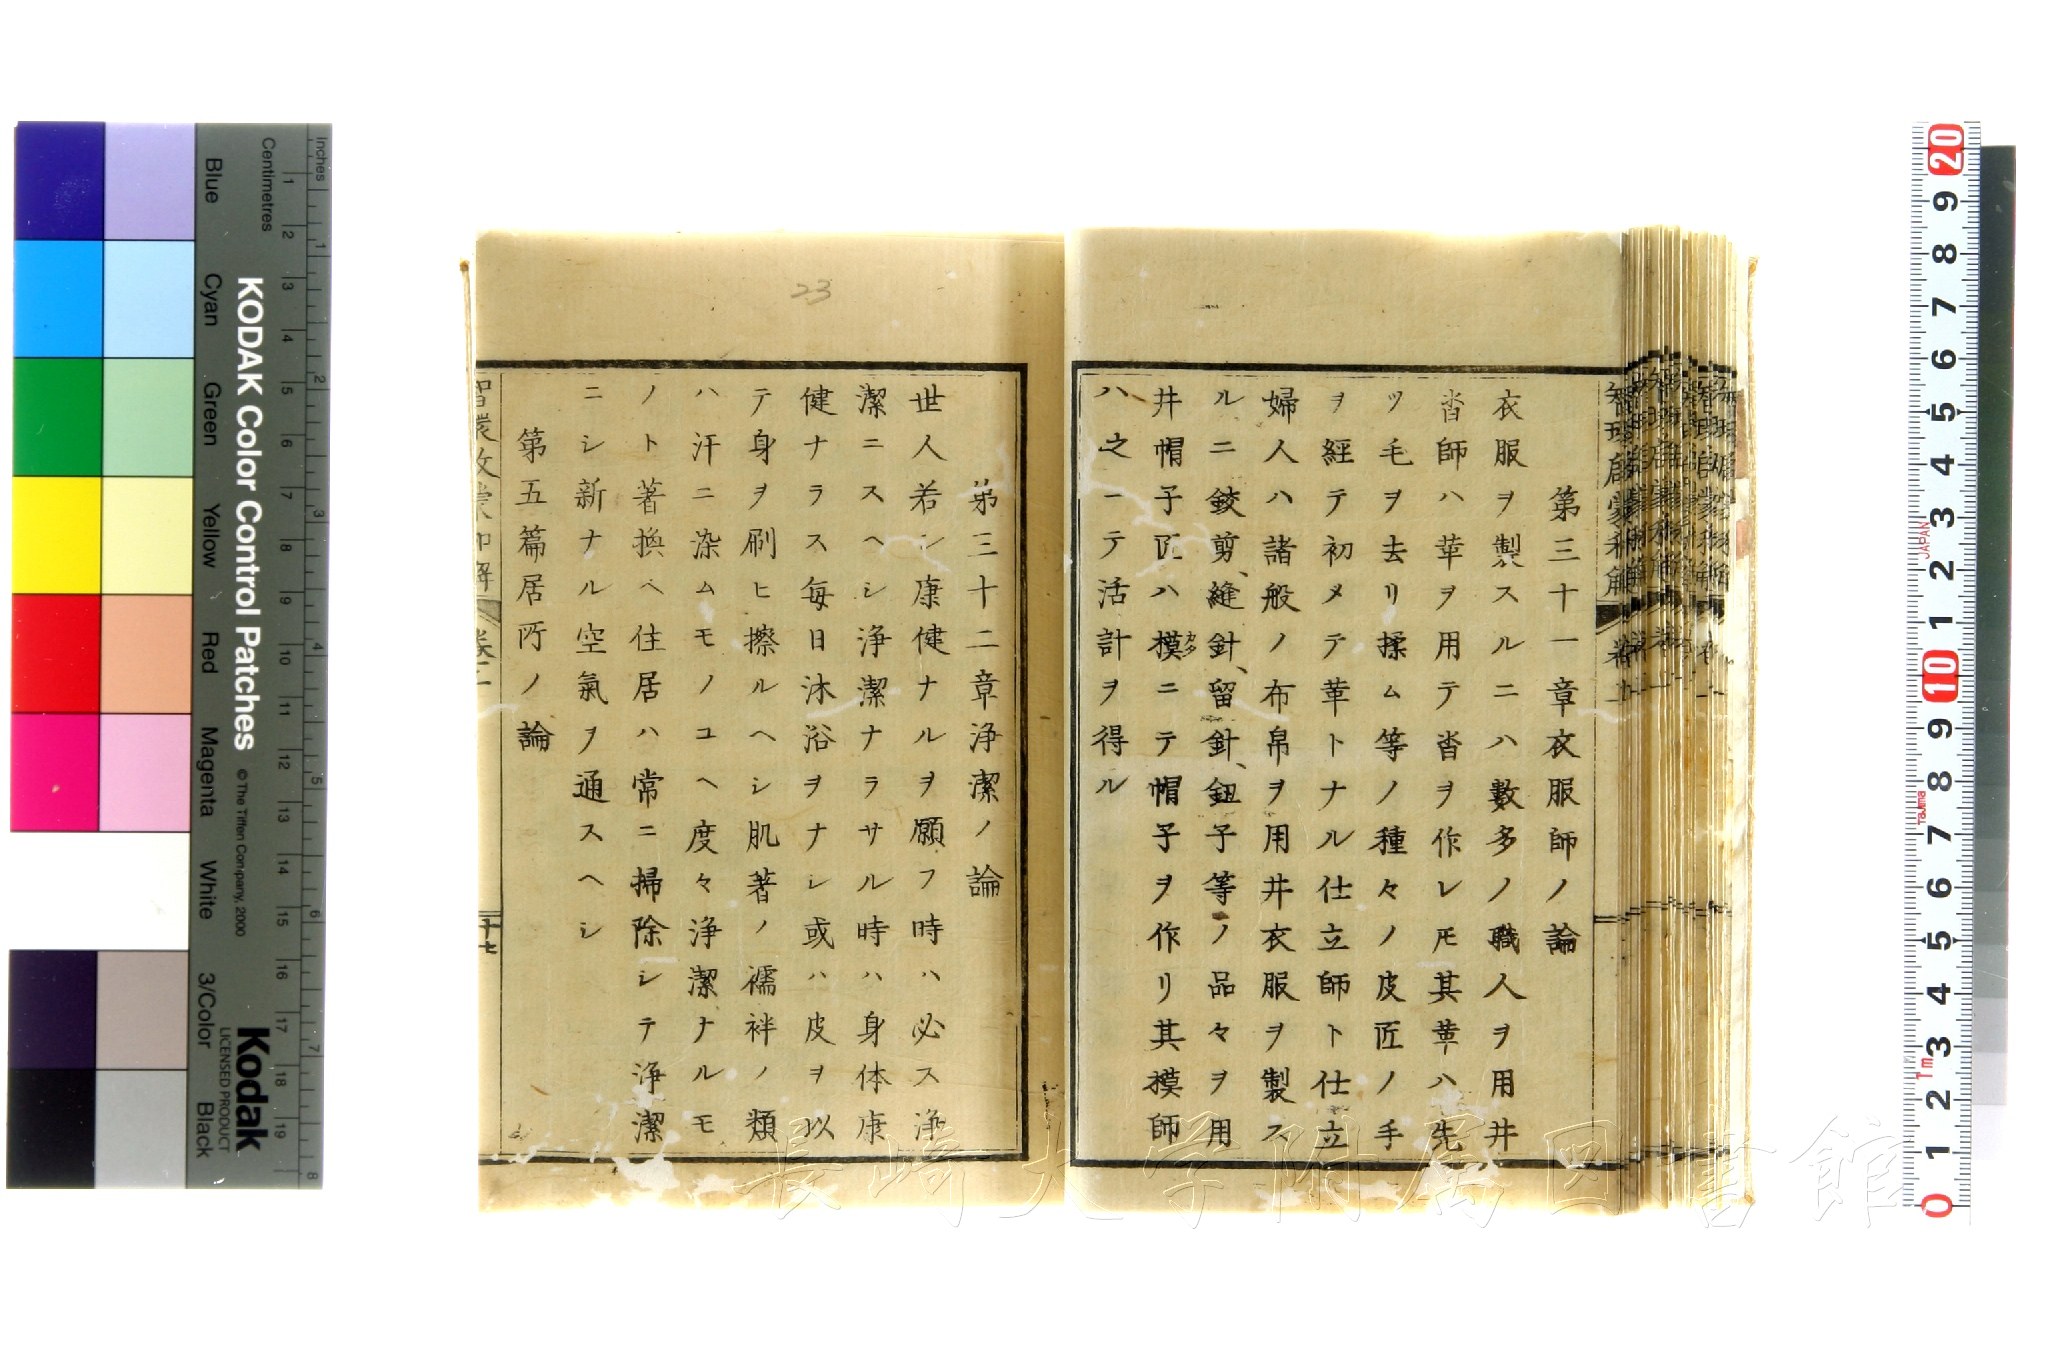 第三十一章衣服師ノ論
衣服ヲ製スルニハ數多ノ職人ヲ用井
沓師ハ革ヲ用テ沓ヲ作レ𪜈其革ハ先
ツ毛ヲ去リ揉ム等ノ種々ノ皮匠ノ手
ヲ經テ初メテ革トナル仕立師ト仕立
婦人ハ諸般ノ布帛ヲ用井衣服ヲ製ス
ルニ鉸剪、縫針、留針、鈕子等ノ品々ヲ用
井帽子匠ハ模ニテ帽子ヲ作リ其模師
ハ之一テ活計ヲ得ル
第三十二章浄潔ノ論
世人若シ康健ナルヲ願フ時ハ必ス浄
潔ニスヘシ浄潔ナラサル時ハ身体康
健ナラス毎日沐浴ヲナシ或ハ皮ヲ以
テ身ヲ刷ヒ擦ルヘシ肌著ノ襦袢ノ類
ハ汗ニ染ムモノユヘ度々浄潔ナルモ
ノト著換ヘ住居ハ常ニ掃除シテ浄潔
ニシ新ナル空氣ヲ通スヘシ
第五篇居所ノ論
十七
23
KODAK Color Control Patches
© The Tiffen Company, 2000
Kodak
LICENSED PRODUCT
Inches
Centimetres
Blue
Cyan
Green
Yellow
Red
Magenta
White
3/Color
Black
1 2 3 4 5 6 7 8 9 10 11 12 13 14 15 16 17 18 19
1 2 3 4 5 6 7 8
20 9 8 7 6 5 4 3 2 1 10 9 8 7 6 5 4 3 2 1 0
JAPAN
Tajima
1m
長崎大学附属図書館